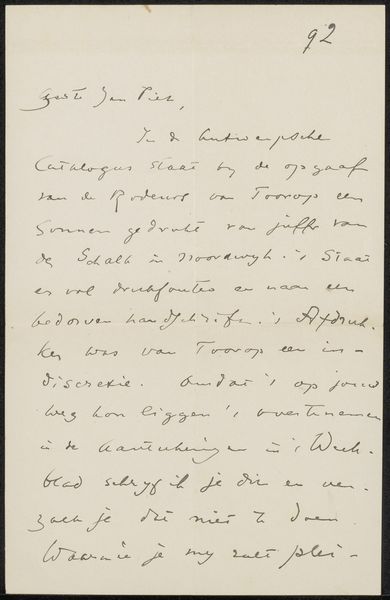 92
Beste Jan Piet,
In de Antwerpsche
Catalogus staat by de opgaaf
van de Rodeurs van Toorop een
Sonnen gedrukt van juffr van
der Schalk in Noordwyk. 't Staat
er vol drukfouten en naar een
bedorven handschrift. 't Afdruk-
ken was van Toorop een in-
discretie. Omdat 't op jouw
weg kon liggen 't overtenemen
in de Aanteekeningen in 't Week-
blad schryf ik je dit en ver-
zoek je dit niet te doen.
Waarmee je my zult plei-